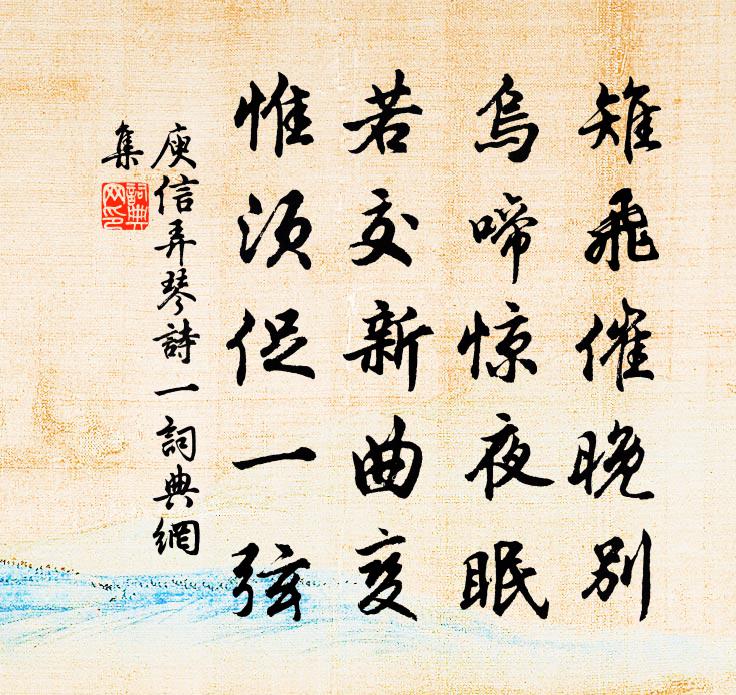 雉飛催晚別
烏啼惊夜眠
若交新曲变
惟须促一弦
庾信弄琴詩一詞典網
集
詞典
网印